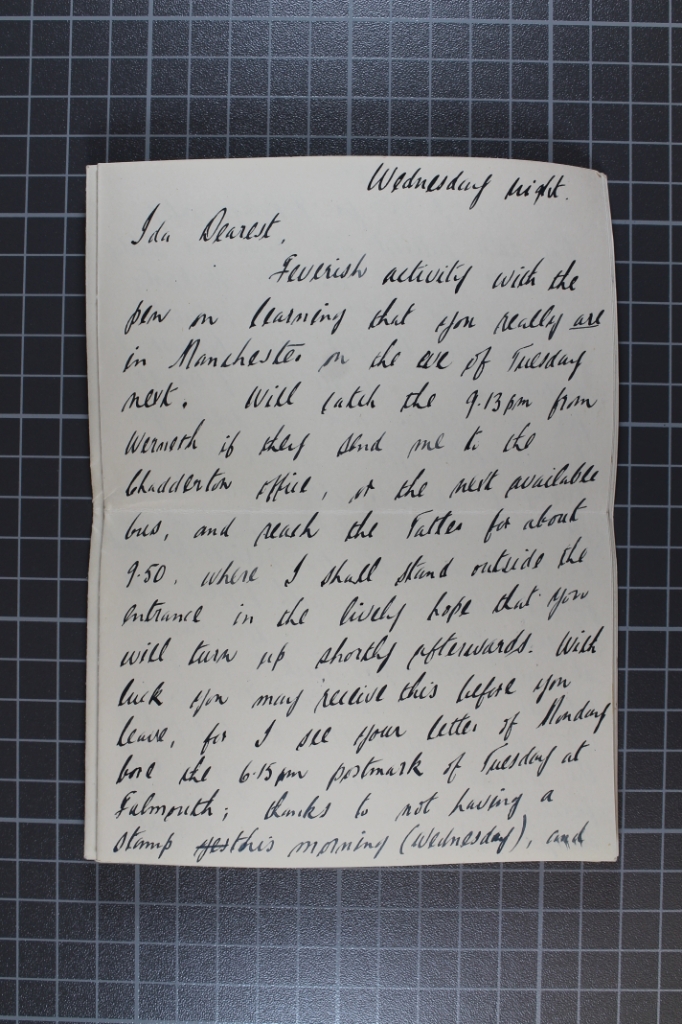 Wednesday night.
Ida Dearest,
Feverish activity with the
pen on learning that you really are
in Manchester on the eve of Tuesday
next. Will catch the 9.13pm from
Werneth if they send me to the
Chadderton office, or the next available
bus, and reach the Tatter for about
9.50, where I shall stand outside the
entrance in the lively hope that you
will turn up shortly afterwards. With
luck you may receive this before you
leave, for I see your letter of Monday
bore the 6.15pm postmark of Tuesday at
Falmouth; thanks to not having a
stamp this morning (Wednesday), and